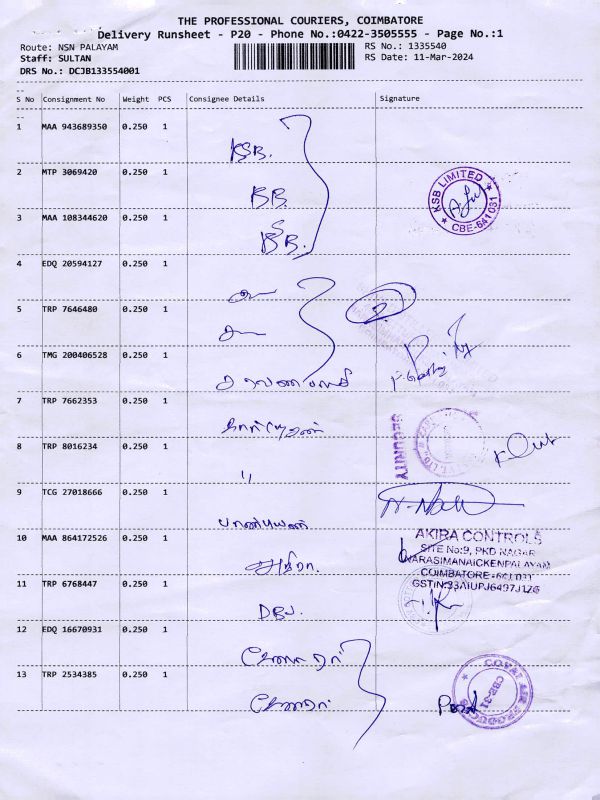 THE PROFESSIONAL COURIERS, COIMBATORE
Delivery Runsheet - P20 - Phone No.:0422-3505555 - Page No.:1
Route: NSN PALAYAM
RS No.: 1335540
Staff: SULTAN
RS Date: 11-Mar-2024
DRS No.: DCJB133554001
S No Consignment No Weight PCS Consignee Details Signature
1 MAA 943689350 0.250 1 KSB.
2 MTP 3069420 0.250 1
KSB LIMITED
CBE-641 031
3 MAA 108344620 0.250 1 KSB.
4 EDQ 20594127 0.250 1
5 TRP 7646480 0.250 1
6 TMG 200406528 0.250 1
7 TRP 7662353 0.250 1
SECURITY
8 TRP 8016234 0.250 1 "
9 TCG 27018666 0.250 1
10 MAA 864172526 0.250 1
AKIRA CONTROLS
SITE No:9, PKD NAGAR
NARASIMANAICKENPALAYAM
COIMBATORE-641 031
GSTIN:33AIUPJ6497J1Z6
11 TRP 6768447 0.250 1
12 EDQ 16670931 0.250 1
13 TRP 2534385 0.250 1
COVAI AIR PRODUCTS
CBE-31